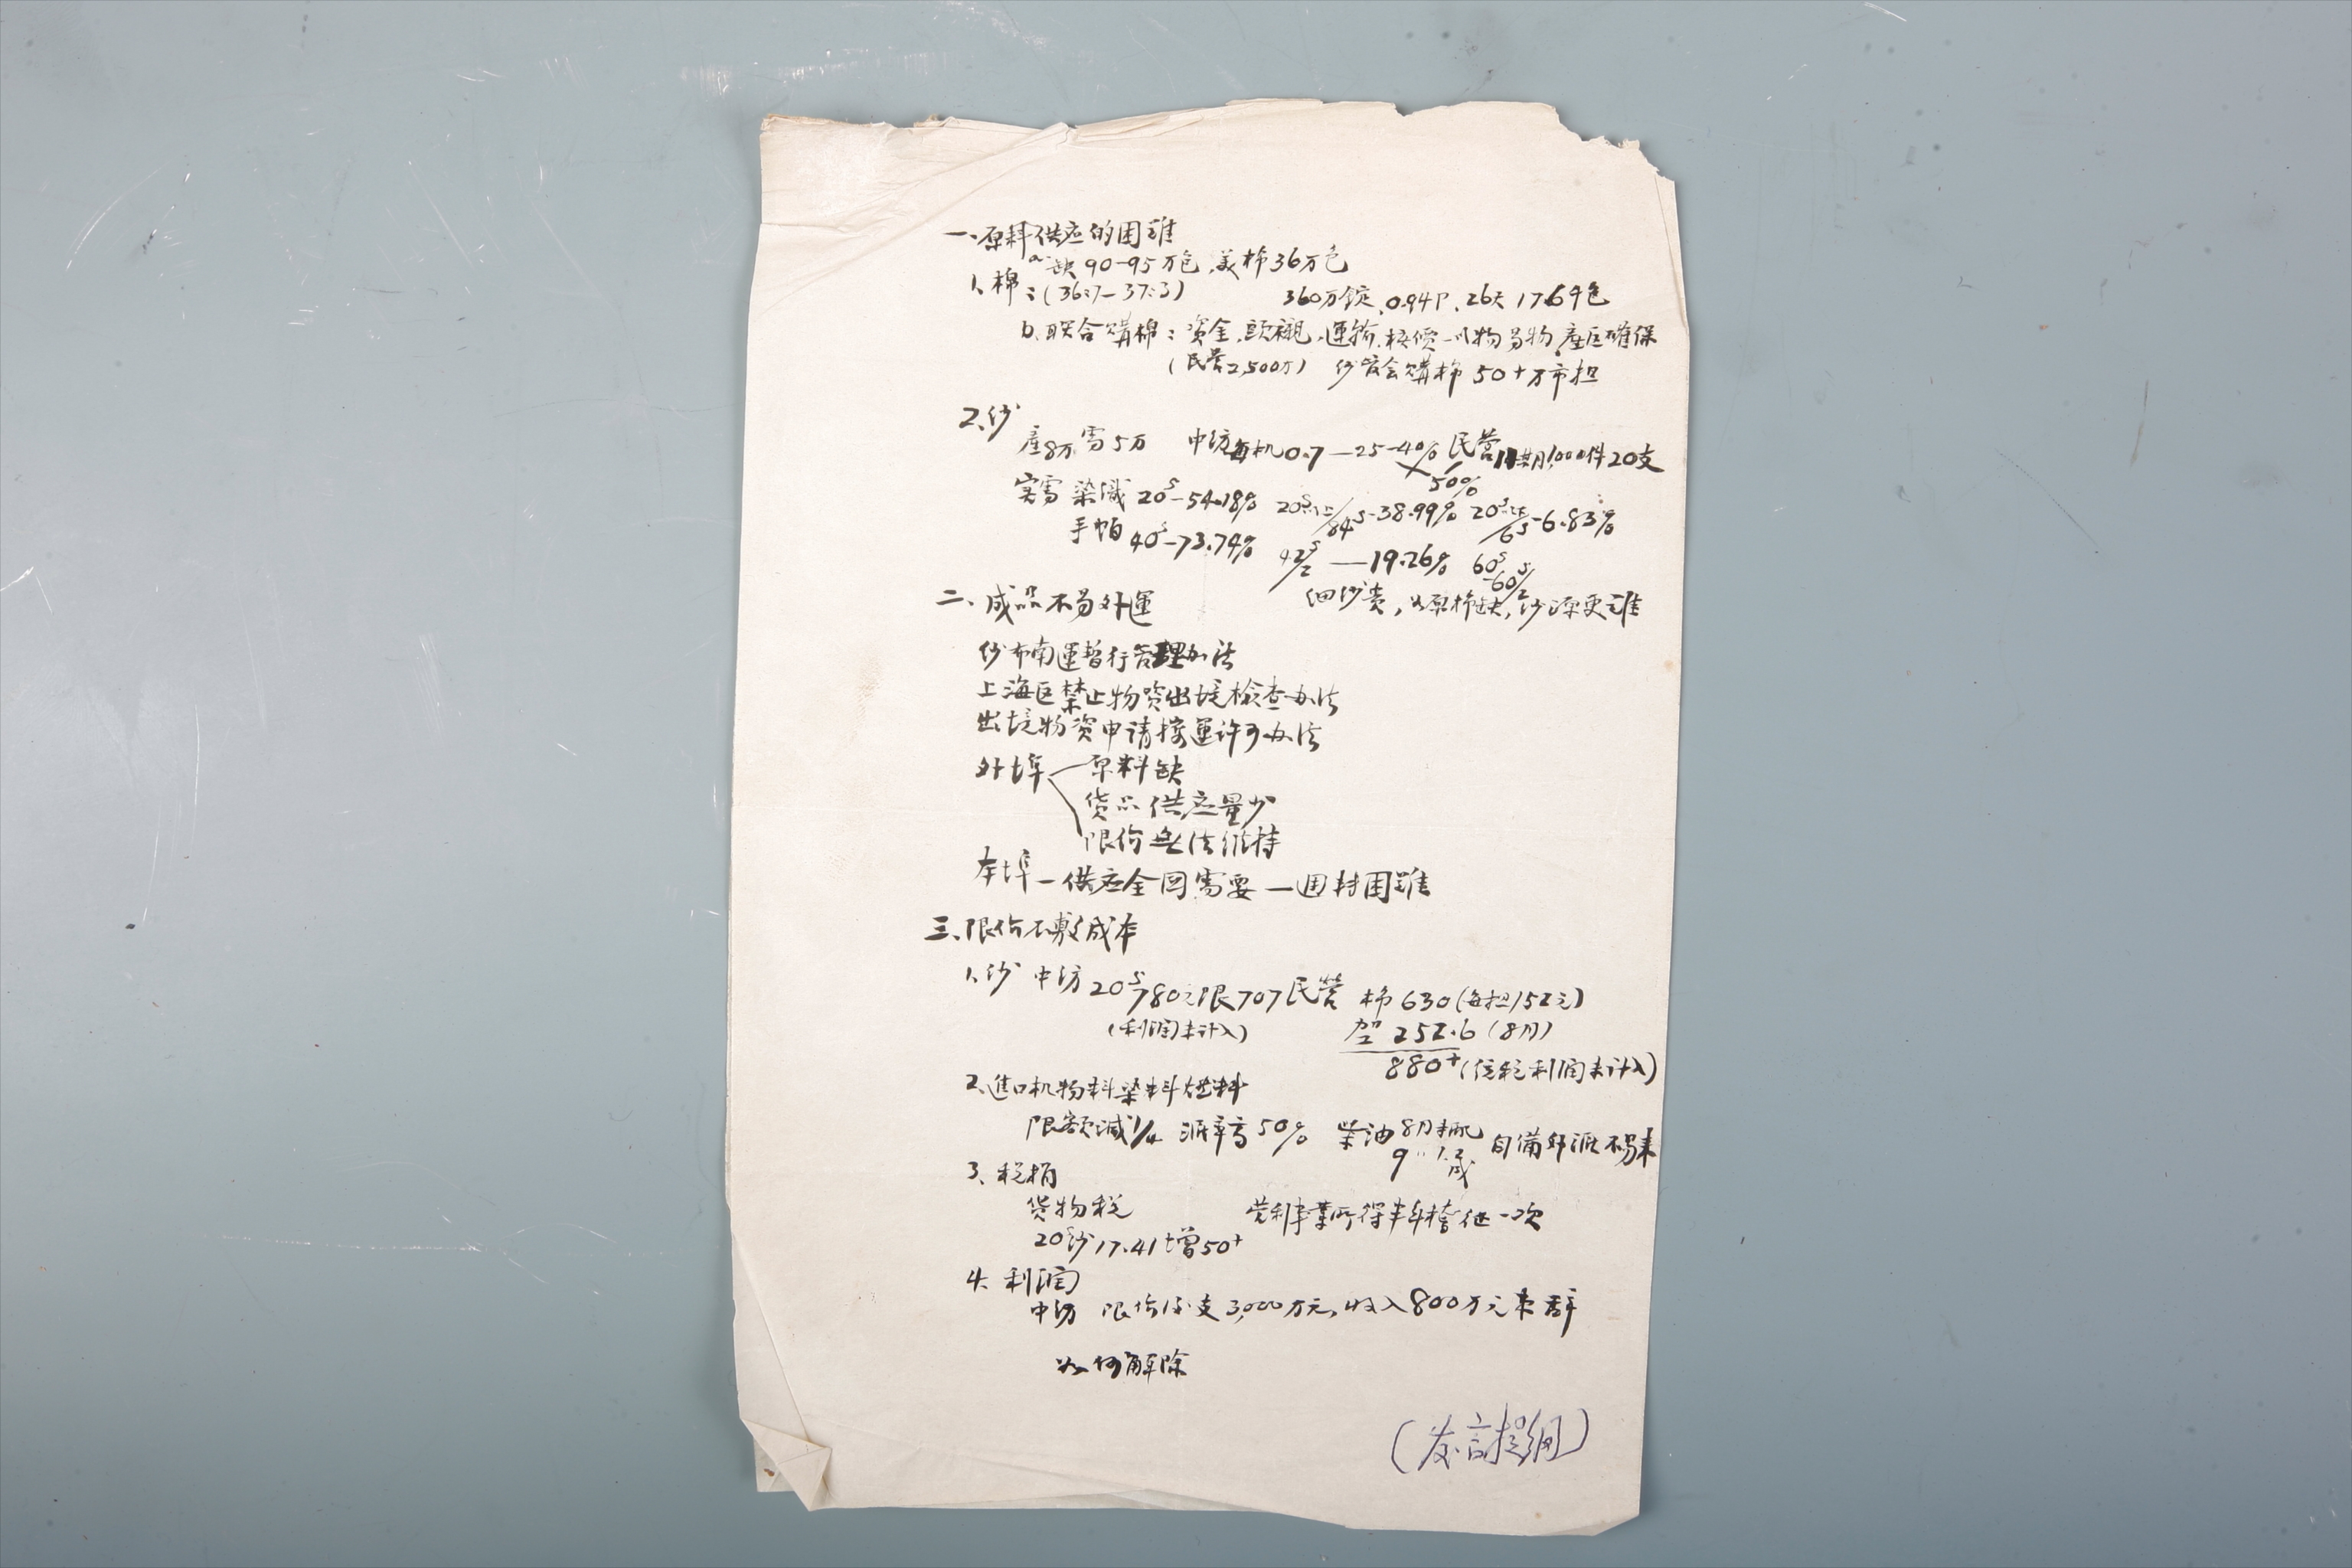 一、原料供应的困难
1、棉：a. 缺90-95万包，美棉36万包
(36:7—37:3) 360万锭、0.94P、26天 17.64包
b. 联合购棉：资金、头衬、运输、核价—以物易物、产区确保
(民营2,500万) 纱管会购棉50+万市担
2、纱
产8万需5万 中纺每机0.7—25-40% 民营 月1,000件20支
50%
实需 染织20S-54.18% 20S以上/84S-38.99% 20S以下/6S-6.83%
手帕40S-73.74% 42S/2—19.26% 60S-60S/2
二、成品不易外運 细纱贵，以原棉缺，纱源更难
纱布南運暫行管理办法
上海区禁止物资出境檢查办法
出境物资申请接運许可办法
外埠—原料缺
货品供应量少
限价無法维持
本埠—供应全国需要—困難
三、限价不敷成本
1、纱 中纺20S780元限707民营 棉630(每担152元)
(利润未计入) 加工 252.6(8月)
880+(利润未计入)
2、進口机物料染料燃料
限额减1/4 汇率高50% 柴油8月未配 自備外汇不易来
9〃1.2成
3、税捐
货物税 营利事業所得半年一次
20S纱17.41+增50+
4、利润
中纺 限价后支3,000万元，收入800万元
如何解除
(发言提纲)